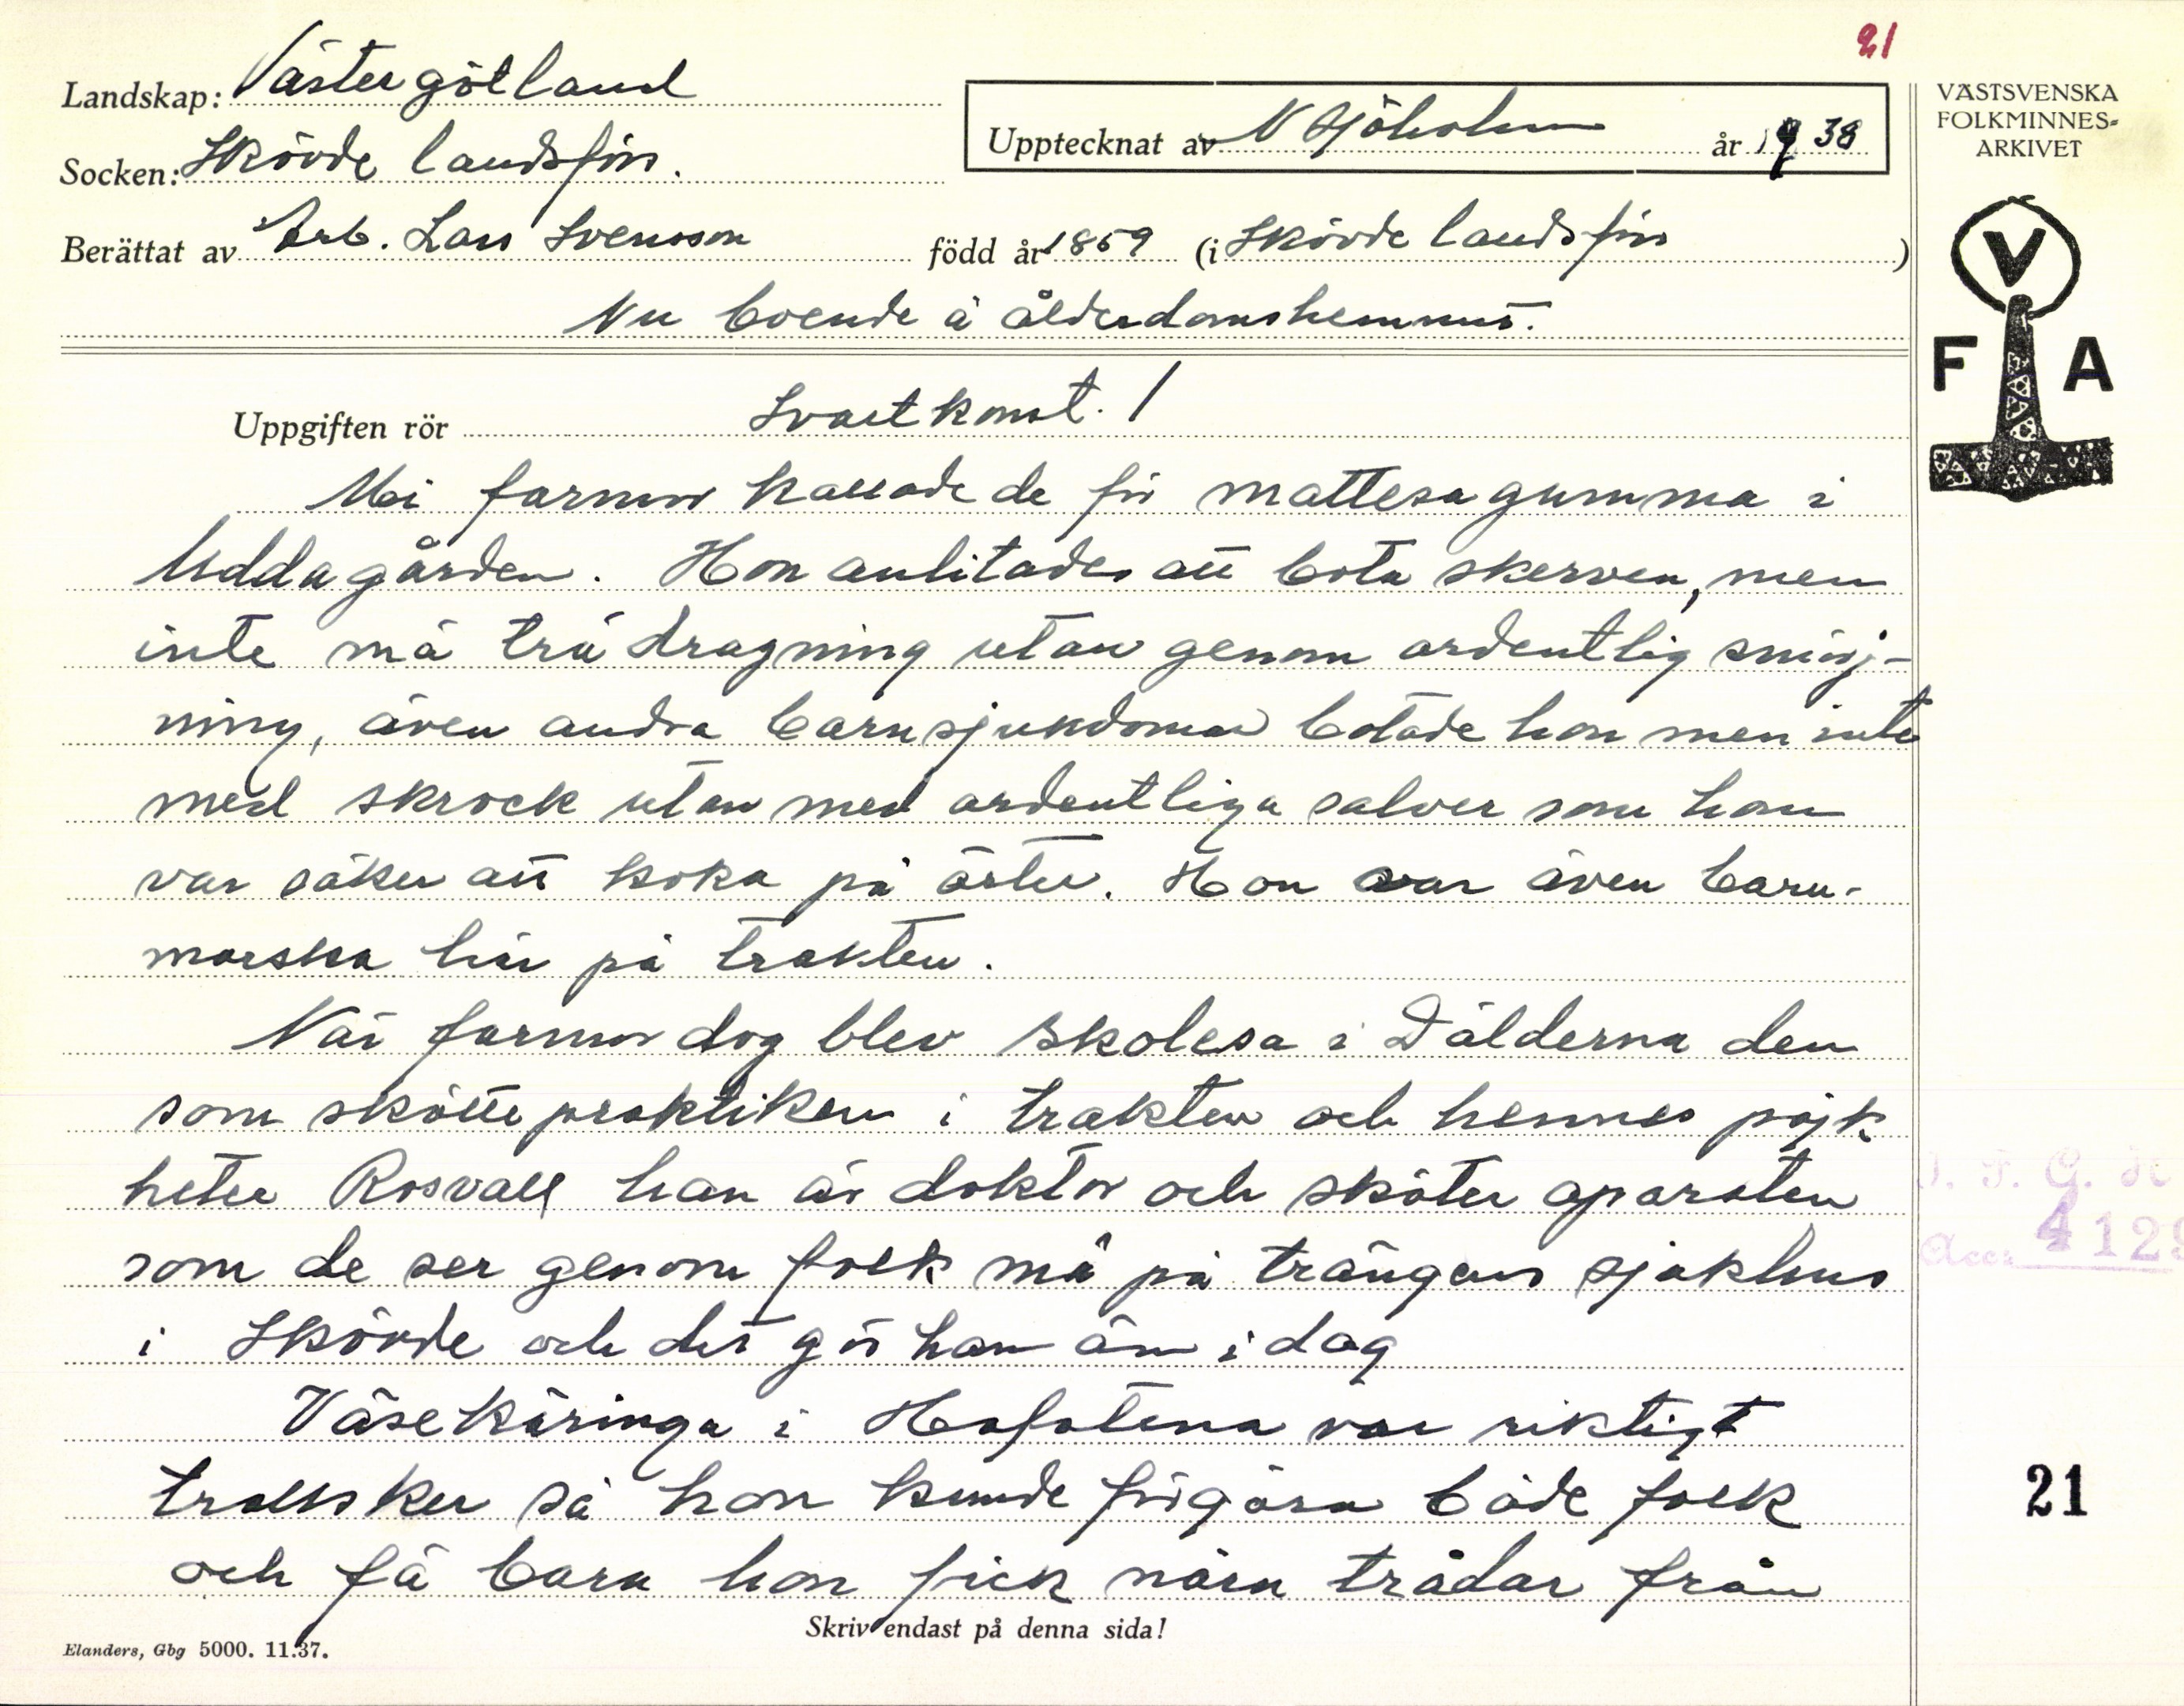 21
Landskap: Västergötland
Socken: Skövde landsförs.
Upptecknat av N Sjöholm år 1938
VÄSTSVENSKA
FOLKMINNES-
ARKIVET
Berättat av Arb. Lars Svensson född år 1859 (i Skövde landsförs )
Nu boende å ålderdomshemmet.
V
F A
Uppgiften rör Svartkonst. /
Mi farmor kallade de för mattesagumma i
Uddagården. Hon anlitades att bota skerven, men
inte mä trådragning utan genom ordentlig smörj-
ning, även andra barnsjukdomar botade hon men inte
med skrock utan med ordentliga salver som hon
var säker att koka på örter. Hon var även barn-
morska här på trakten.
När farmor dog blev Skolesa i Dälderna den
som skötte praktiken i trakten och hennes pojk
heter Rosvall han är doktor och sköter aparaten
som de ser genom folk mä på trängens sjukhus
i Skövde och det gör han än i dag
Väsekäringa i Hasfatena var riktigt
trollsker så hon kunde förgöra både folk
och fä bara hon fick nåra trådar från
Skriv endast på denna sida!
Elanders, Gbg 5000. 11.37.
I. F. G. H
Acc. 4129
21